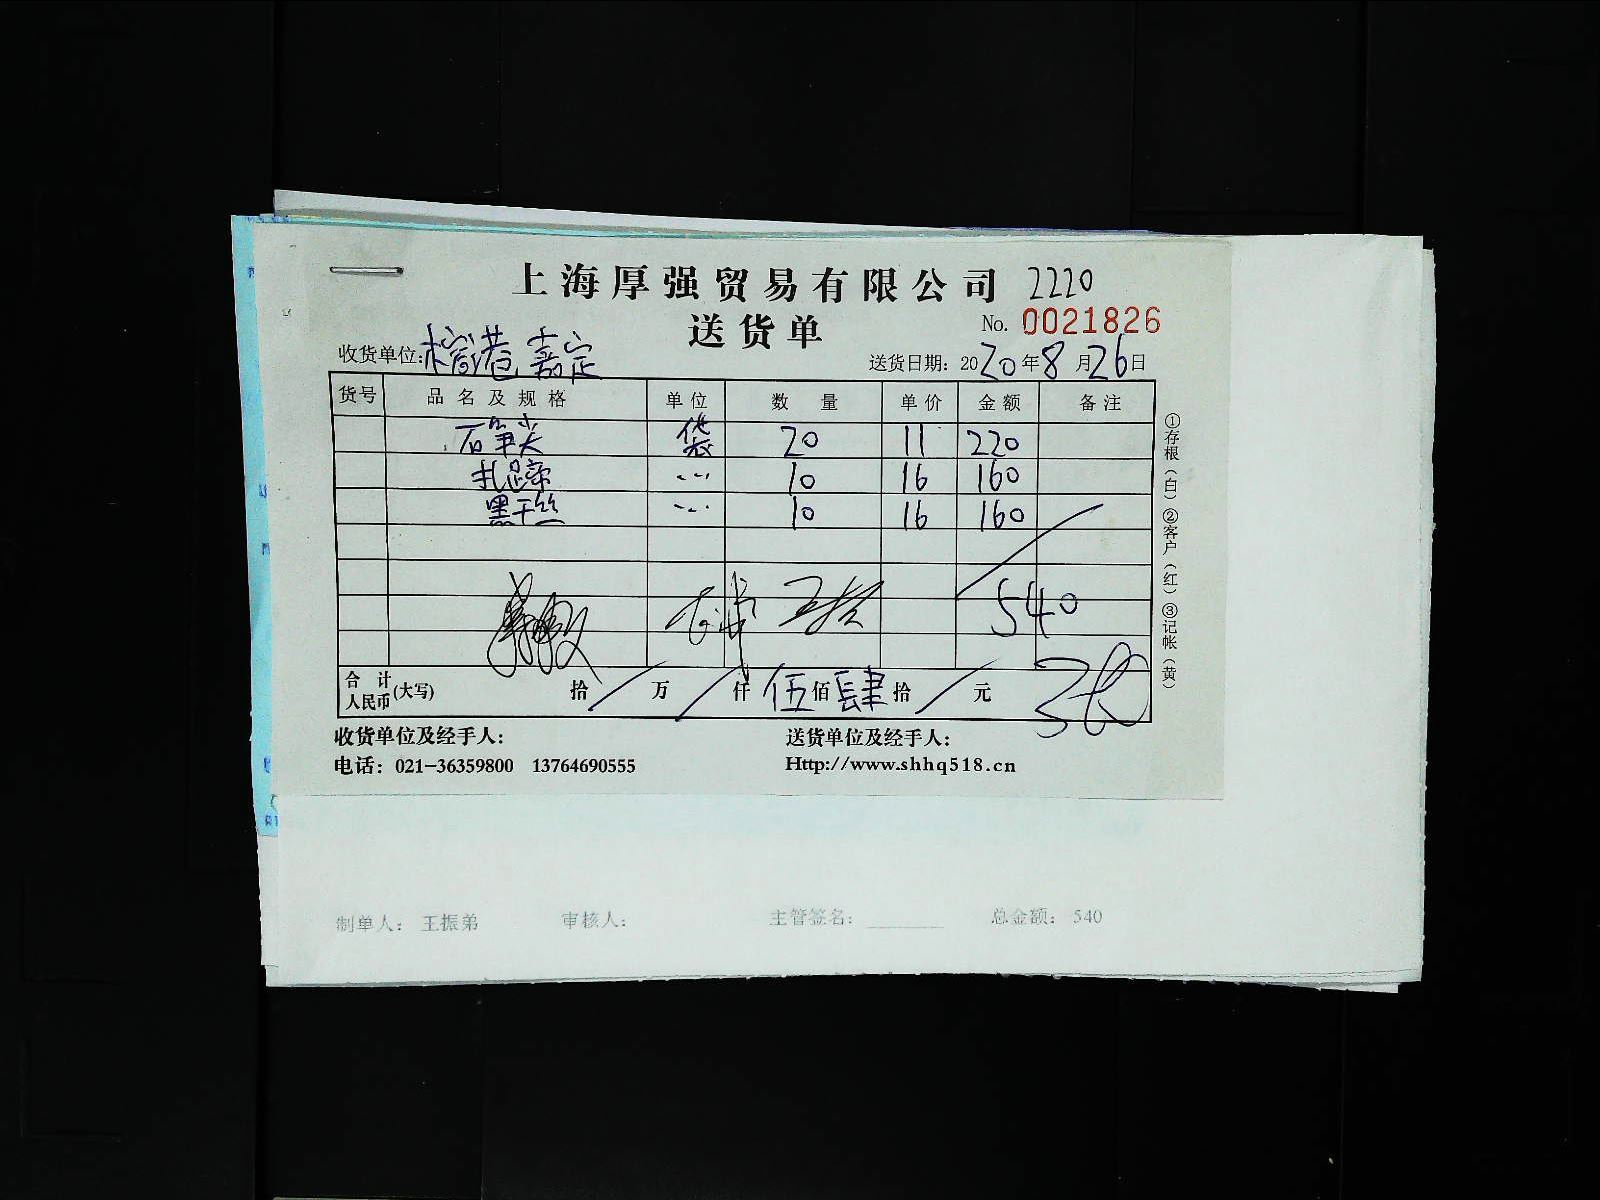 上海厚强贸易有限公司 2220
送货单 No. 0021826
收货单位: 嘉定 送货日期: 2020年8月26日
货号 品名及规格 单位 数量 单价 金额 备注
石笋尖 袋 20 11 220
扎蹄 〃 10 16 160
黑干丝 〃 10 16 160
540
合计人民币(大写) 拾/万/仟伍佰肆拾/元
收货单位及经手人: 送货单位及经手人:
电话: 021-36359800 13764690555 Http://www.shhq518.cn
①存根(白)②客户(红)③记帐(黄)
制单人: 王振弟 审核人: 主管签名: ________ 总金额: 540